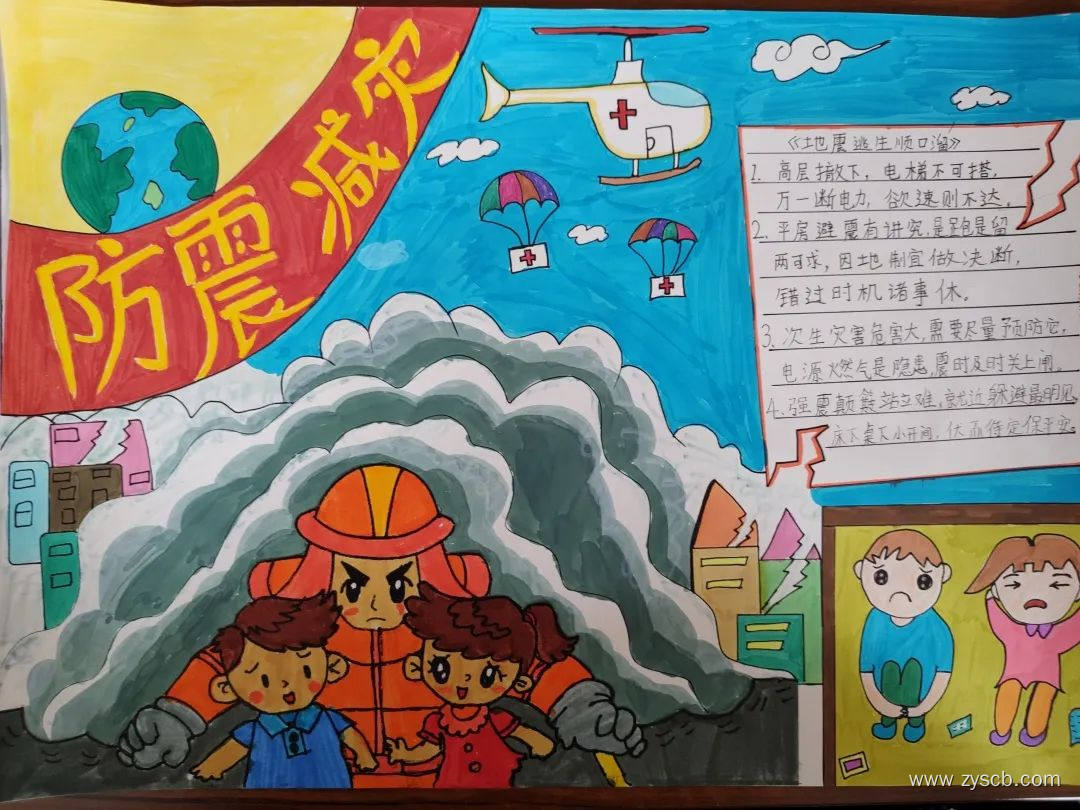 防震减灾
《地震逃生顺口溜》
1. 高层撤下，电梯不可搭，
万一断电力，欲速则不达。
2. 平房避震有讲究，是跑是留
两可求，因地制宜做决断，
错过时机诸事休。
3. 次生灾害危害大，需要尽量预防它，
电源燃气是隐患，震时及时关上闸。
4. 强震颠簸站立难，就近躲避最明见，
床下桌下小开间，伏而待定保平安
www.zyscb.com